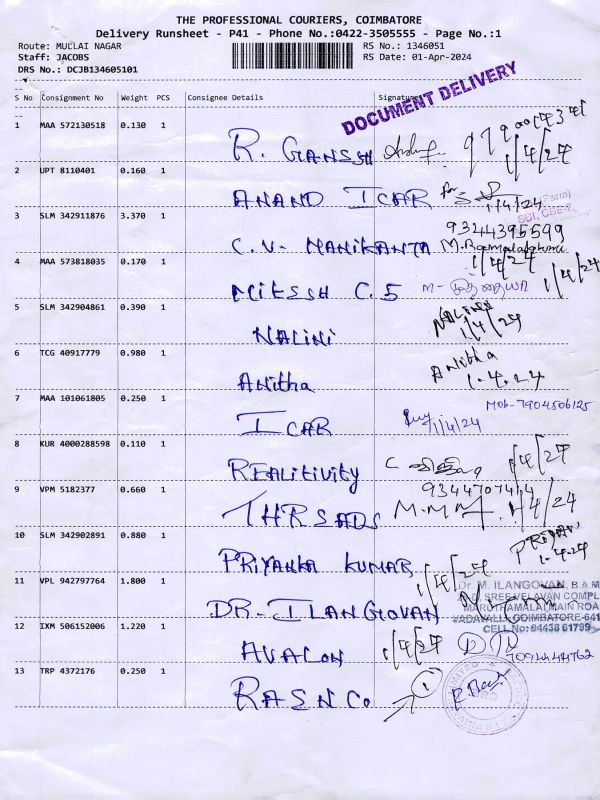 THE PROFESSIONAL COURIERS, COIMBATORE
Delivery Runsheet - P41 - Phone No.:0422-3505555 - Page No.:1
Route: MULLAI NAGAR RS No.: 1346051
Staff: JACOBS RS Date: 01-Apr-2024
DRS No.: DCJB134605101
DOCUMENT DELIVERY
S No Consignment No Weight PCS Consignee Details Signature
1 MAA 572130518 0.130 1
R. GANESH 1/4/24
2 UPT 8110401 0.160 1
ANAND ICAR for 1/4/24
3 SLM 342911876 3.370 1 SBI, CBE-7.
9344395599
C.V. MANIKANTA 1/4/24
4 MAA 573818035 0.170 1
MITESH C.S 1/4/24
5 SLM 342904861 0.390 1 NALINI
NALINI 1/4/24
6 TCG 40917779 0.980 1 Anitha
Anitha 1.4.24
7 MAA 101061805 0.250 1 Mob-7904506125
ICAR 1/4/24
8 KUR 4000288598 0.110 1
REALITIVITY 1/4/24
9 VPM 5182377 0.660 1 9344707414
THREADS M.M.M 1/4/24
10 SLM 342902891 0.880 1 PRIYAN
PRIYANKA KUMAR 1.4.24
1/4/24
11 VPL 942797764 1.800 1 Dr. M. ILANGOVAN, B.A.M
SREE VELAVAN COMPL
DR. ILANGOVAN MARUTHAMALAI MAIN ROA
VADAVALLI, COIMBATORE-641
12 IXM 506152006 1.220 1 CELL No: 94438 61799
AVALON 1/4/24 7094444762
13 TRP 4372176 0.250 1
RAENCO 1